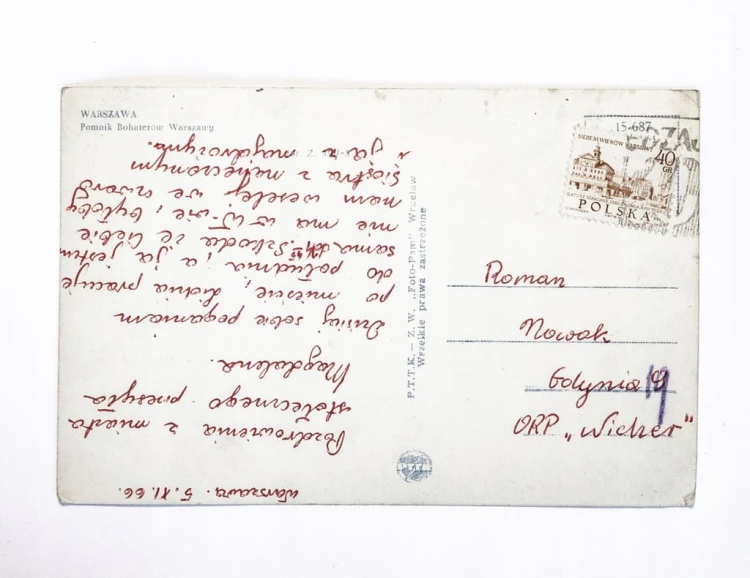 WARSZAWA
Pomnik Bohaterów Warszawy
Warszawa. 5.XI.66.
Pozdrowienia z miasta
stołecznego przesyła
Magdalena.
Dzisiaj sobie poganiam
po mieście, Lidka pracuje
do południa, a ja jestem
sama. Szkoda że Ciebie
nie ma w W-wie, byłoby
nam weselej we czworo
siostra z narzeczonym
ja z
P.T.T.K. — Z. W. „Foto-Pam" Wrocław
Wszelkie prawa zastrzeżone
15-687
SIEDEM WIEKÓW WARSZAWY
40 GR
POLSKA
Roman
Nowak
Gdynia 19
ORP „Wicher"